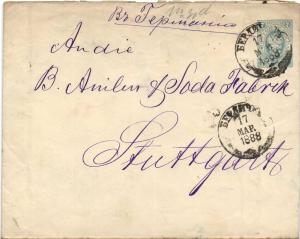 Въ Германію
An die
B. Anilin & Soda Fabrik
Stuttgart
17
МАР.
1888